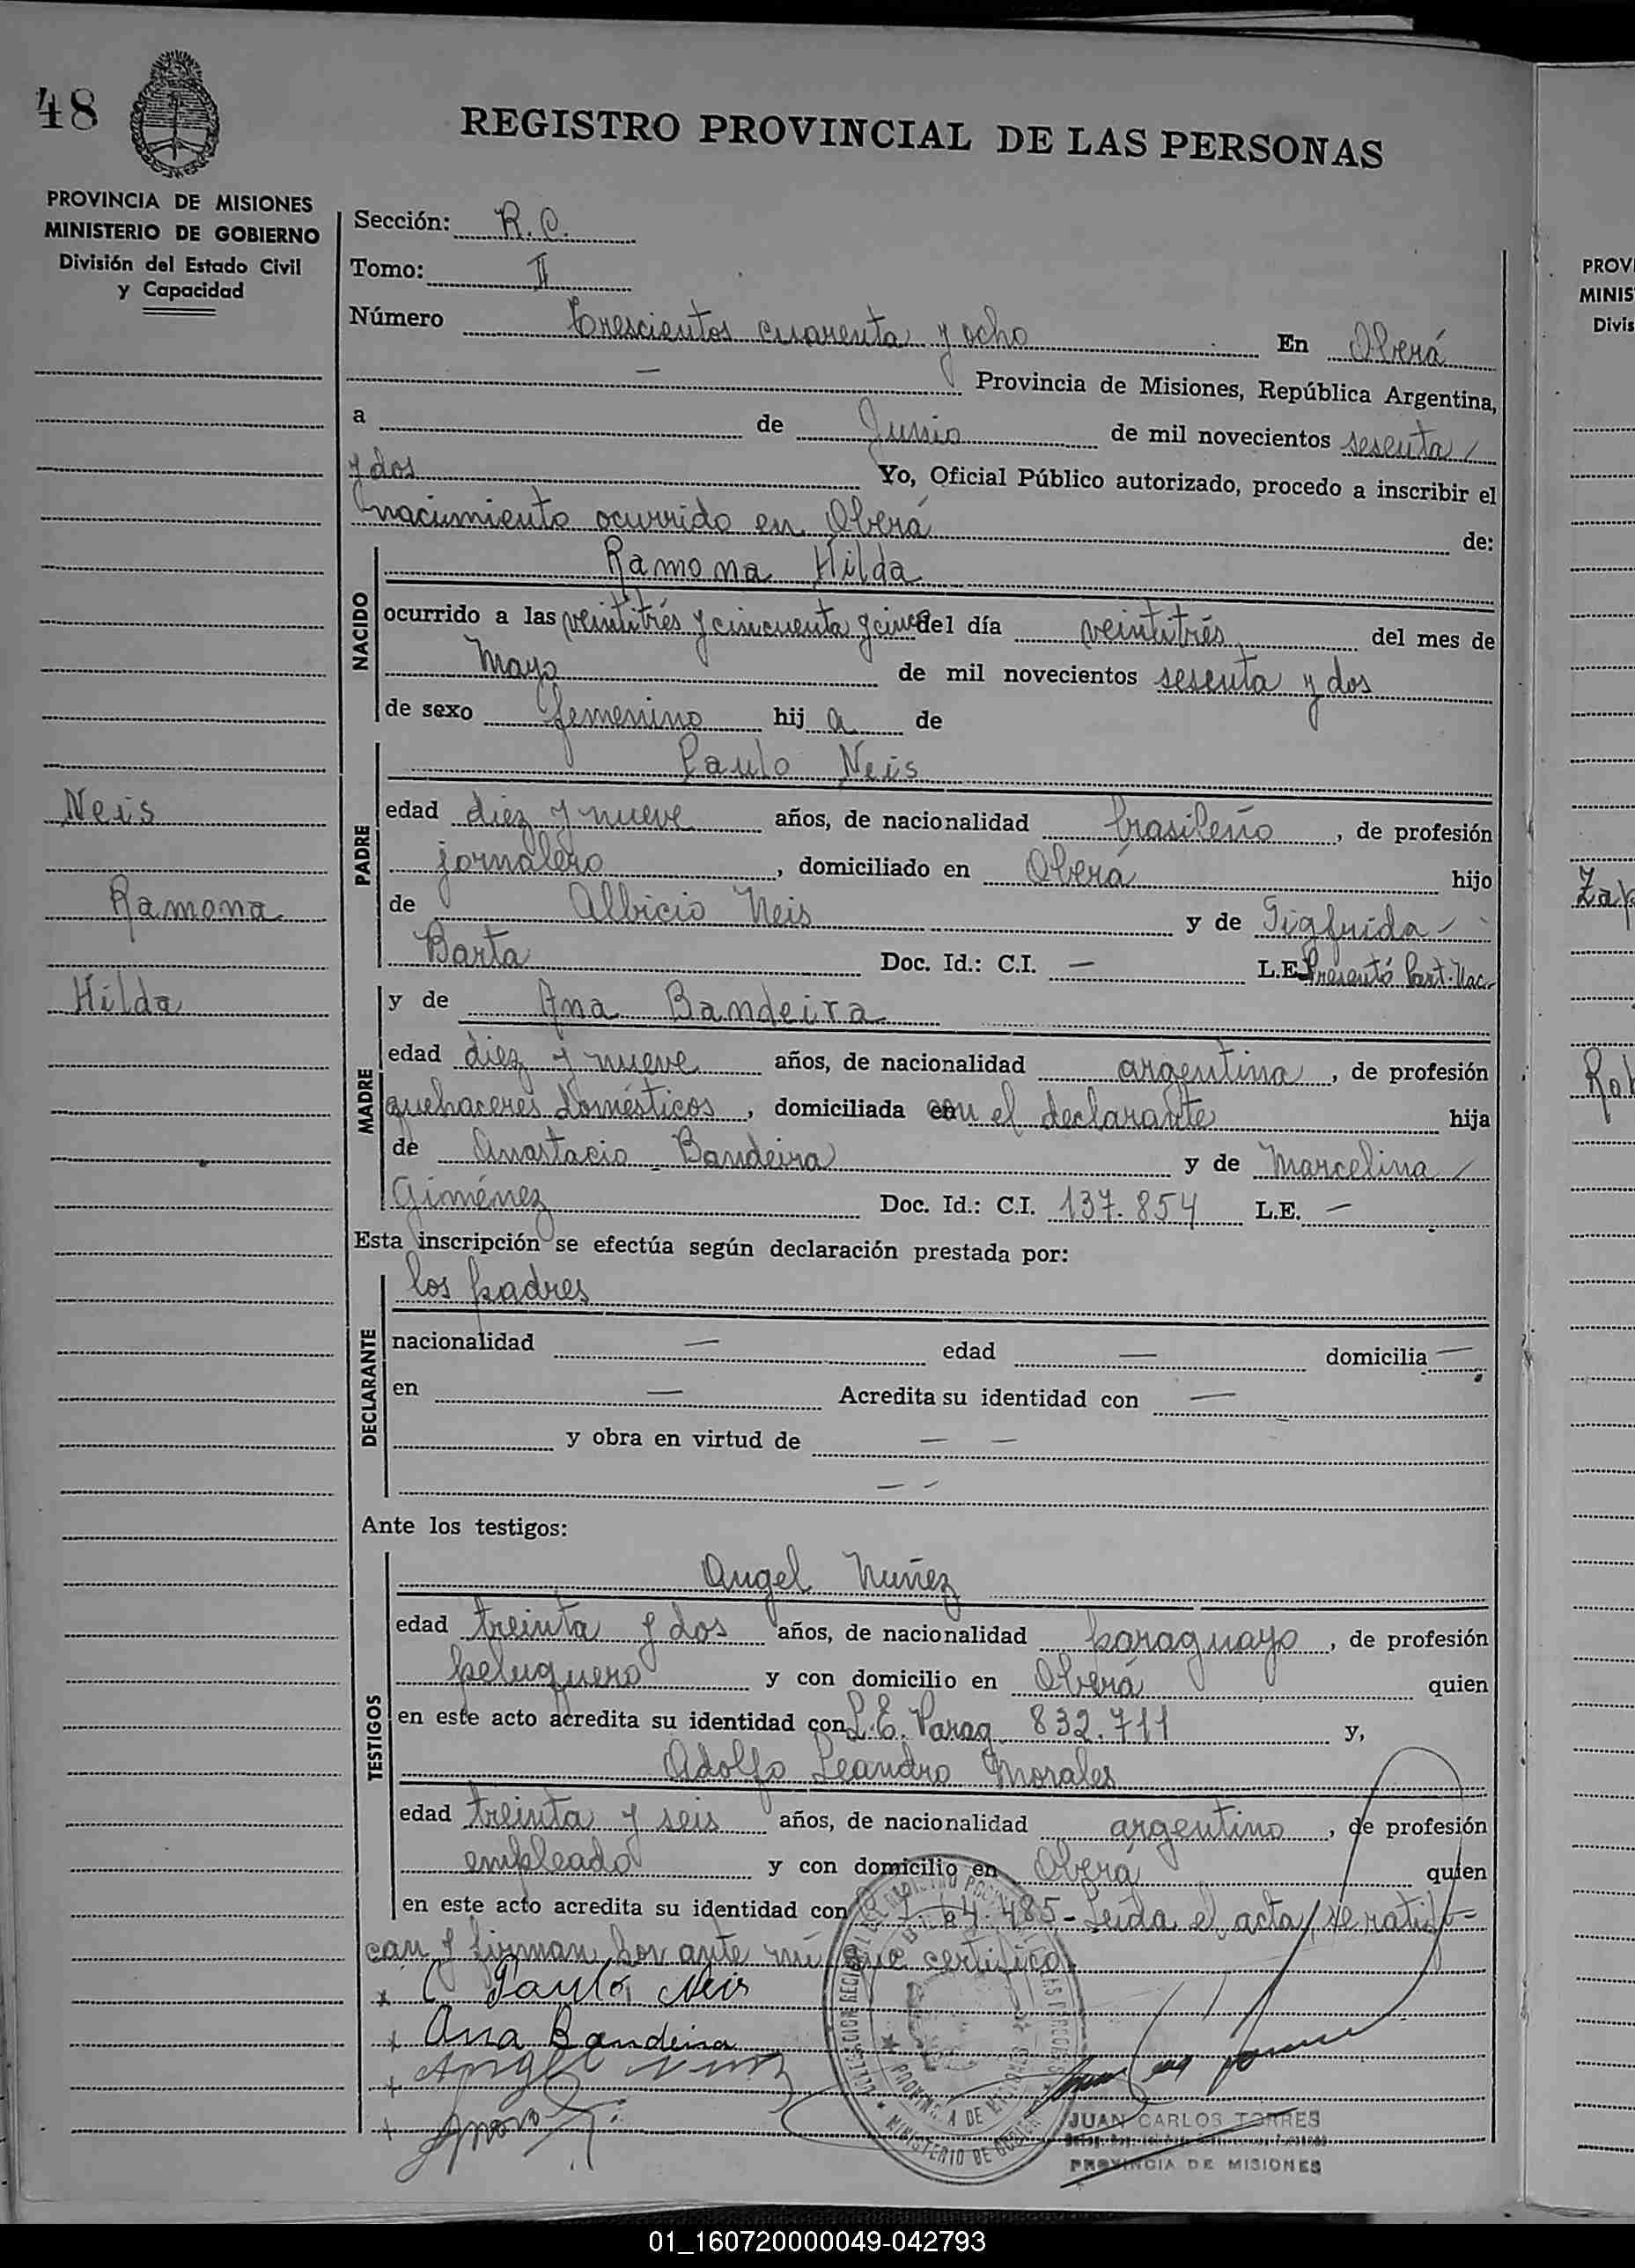 48
REGISTRO PROVINCIAL DE LAS PERSONAS
PROVINCIA DE MISIONES
MINISTERIO DE GOBIERNO
División del Estado Civil
y Capacidad
Neis
Ramona
Hilda
Sección: R. C.
Tomo: II
Número Trescientos cuarenta y ocho En Oberá
— Provincia de Misiones, República Argentina,
a de Junio de mil novecientos sesenta /
y dos Yo, Oficial Público autorizado, procedo a inscribir el
nacimiento ocurrido en Oberá de:
NACIDO
Ramona Hilda
ocurrido a las veintitrés y cincuenta y cinco del día veintitrés del mes de
Mayo de mil novecientos sesenta y dos
de sexo femenino hij a de
PADRE
Paulo Neis
edad diez y nueve años, de nacionalidad brasileño, de profesión
jornalero, domiciliado en Oberá hijo
de Albicio Neis y de Sigfrida -
Barta Doc. Id.: C.I. — L.E. Presentó Part. Nac.
MADRE
y de Ana Bandeira
edad diez y nueve años, de nacionalidad argentina, de profesión
quehaceres domésticos, domiciliada con el declarante hija
de Anastacio Bandeira y de Marcelina /
Giménez Doc. Id.: C.I. 137.854 L.E. —
Esta inscripción se efectúa según declaración prestada por:
DECLARANTE
los padres
nacionalidad — edad — domicilia —
en — Acredita su identidad con —
y obra en virtud de — —
— —
Ante los testigos:
TESTIGOS
Angel Nuñez
edad treinta y dos años, de nacionalidad paraguayo, de profesión
peluquero y con domicilio en Oberá quien
en este acto acredita su identidad con L.E. Parag. 832.711 y,
Adolfo Leandro Morales
edad treinta y seis años, de nacionalidad argentino, de profesión
empleado y con domicilio en Oberá quien
en este acto acredita su identidad con 64.485 - Leída el acta, se ratifi=
can y firman por ante mí que certifico
x Paulo Neis
x Ana Bandeira
x Angel Nuñez
x
PROVINCIA DE MISIONES
MINISTERIO DE GOBIERNO
JUAN CARLOS TORRES
PROVINCIA DE MISIONES
PROV
MINIS
Divis
Zap
Rob
01_160720000049-042793